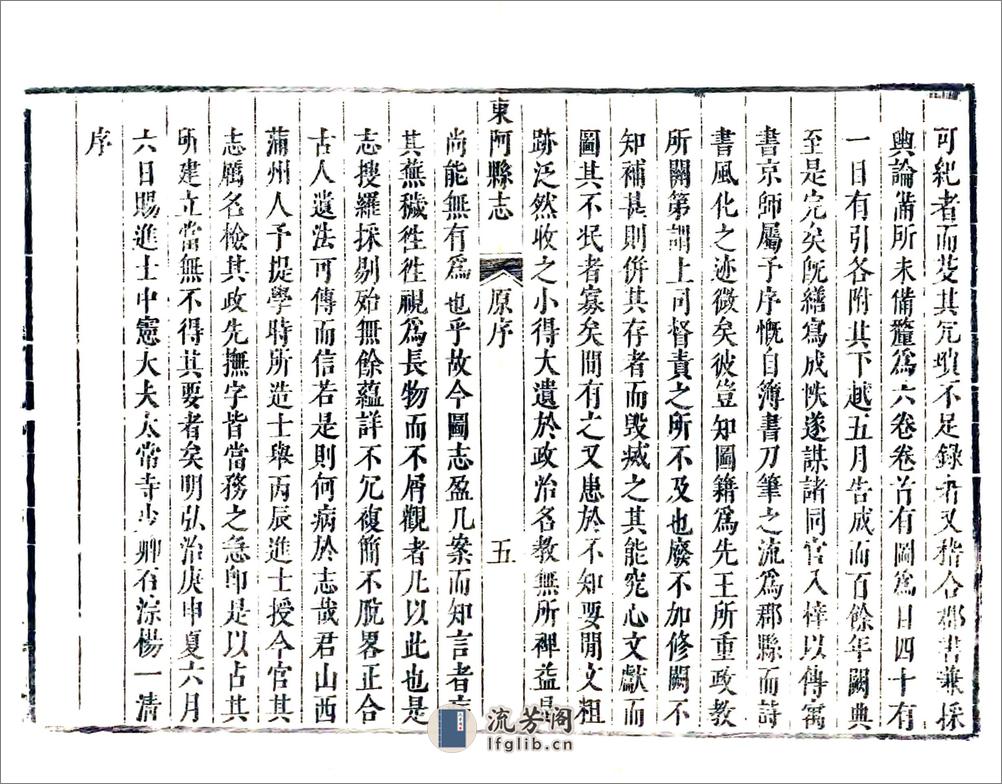 可紀者而芟其冗瑣不足錄者又稽合郡書兼採
輿論備所未備釐爲六卷卷首有圖爲目四十有
一目有引各附其下越五月告成而百餘年闕典
至是完矣旣繕寫成帙遂謀諸同官入梓以傳寓
書京師屬予序慨自簿書刀筆之流爲郡縣而詩
書風化之迹微矣彼豈知圖籍爲先王所重政教
所關第謂上司督責之所不及也廢不加修闕不
知補甚則併其存者而毀滅之其能究心文獻而
圖其不泯者寡矣間有之又患於不知要閒文粗
跡泛然收之小得大遺於政治名教無所裨益是
東阿縣志 原序 五
尚能無有爲也乎故今圖志盈几案而知言者
其蕪穢徃徃視爲長物而不屑觀者凡以此也是
志搜羅採剔殆無餘蘊詳不冗複簡不脫畧正合
古人遺法可傳而信若是則何病於志哉君山西
蒲州人予提學時所造士舉丙辰進士授今官其
志厲名檢其政先撫字皆當務之急卽是以占其
所建立當無不得其要者矣明弘治庚申夏六月
六日賜進士中憲大夫太常寺少卿石淙楊一清
序
流芳阁
lfglib.cn